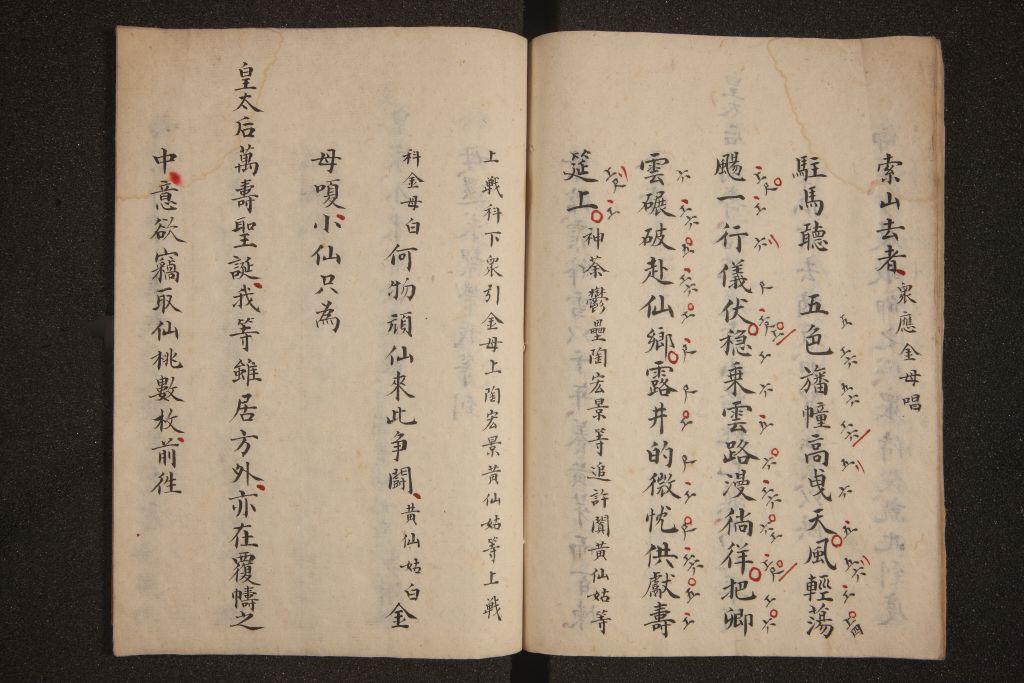 索山去者衆應金母唱
駐馬聽 五色旛幢高曵天風輕蕩
颺一行儀伏穏乗雲路漫徜徉把卿
雲碾破赴仙鄉靈井的微忱供獻壽
筵上神荼鬱壘陶宏景等追許閏黃仙姑等
上戰科下衆引金母上陶宏景黃仙姑等上戰
科金母白何物頑仙來此争鬪黃仙姑白金
母嗄小仙只為
皇太后萬壽聖誕我等雖居方外亦在覆幬之
中意欲竊取仙桃數枚前徃